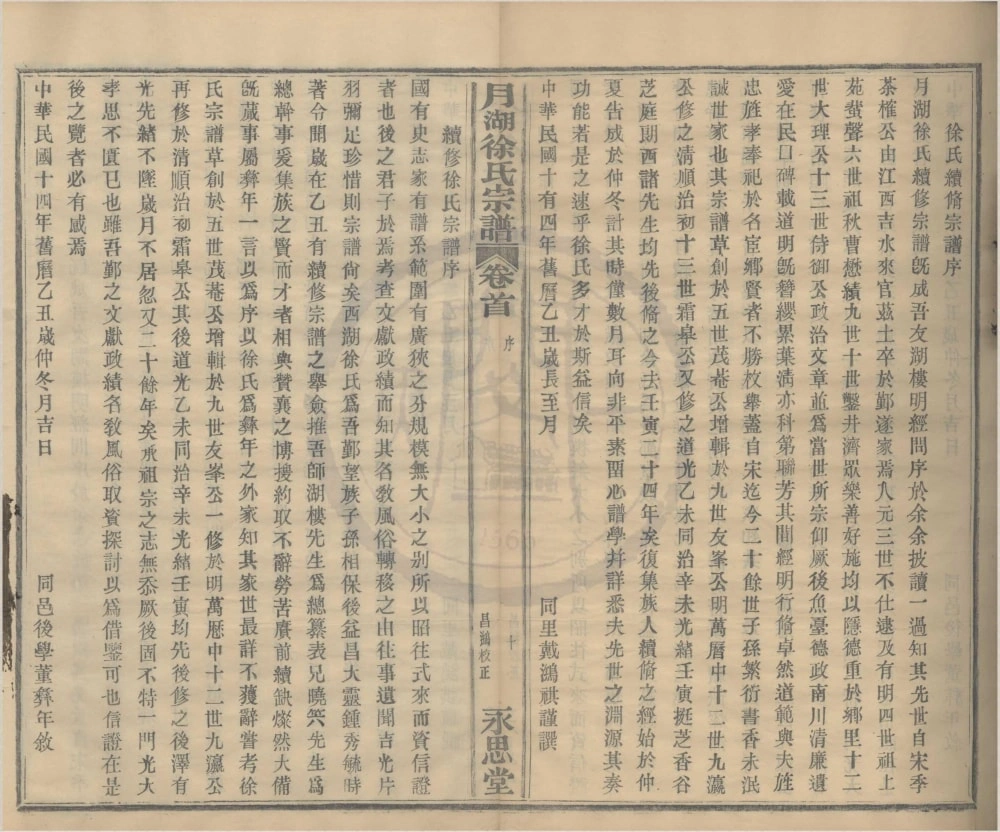 徐氏續脩宗譜序
月湖徐氏續修宗譜旣成吾友湖樓明經問序於余余披讀一過知其先世自宋季
茶榷公由江西吉水來官茲土卒於鄞遂家焉八元三世不仕逮及有明四世祖上
苑蜚聲六世祖秋曹懋績九世十世鑿井濟眾樂善好施均以隱德重於鄉里十二
世大理公十三世侍御公政治文章並為當世所宗仰厥後魚臺德政南川清廉遺
愛在民口碑載道明旣簪纓累葉淸亦科第聯芳其間經明行脩卓然道範與夫旌
忠旌孝奉祀於名宦鄉賢者不勝枚舉蓋自宋迄今三十餘世子孫繁衍書香未泯
誠世家也其宗譜草創於五世茂菴公增輯於九世友峯公明萬曆中十二世九瀛
公修之清順治初十三世霜皋公又修之道光乙未同治辛未光緒壬寅挺芝香谷
芝庭朗西諸先生均先後脩之今去壬寅二十四年矣復集族人續脩之經始於仲
夏告成於仲冬計其時僅數月耳向非平素留心譜學并詳悉夫先世之淵源其奏
功能若是之速乎徐氏多才於斯益信矣
中華民國十有四年舊曆乙丑歲長至月
同里戴鴻祺謹譔
月湖徐氏宗譜
卷首
序
十
昌鴻校正
永思堂
續修徐氏宗譜序
國有史志家有譜系範圍有廣狹之分規模無大小之別所以昭往式來而資信證
者也後之君子於焉考查文獻政績而知其名敎風俗轉移之由往事遺聞吉光片
羽彌足珍惜則宗譜尙矣西湖徐氏為吾鄞望族子孫相保後益昌大靈鍾秀毓時
著令聞歲在乙丑有續修宗譜之舉僉推吾師湖樓先生爲總纂表兄曉六先生爲
總幹事爰集族之賢而才者相與贊襄之博搜約取不辭勞苦賡前續缺燦然大備
旣蕆事屬彝年一言以爲序以徐氏爲彝年之外家知其家世最詳不獲辭嘗考徐
氏宗譜草創於五世茂菴公增輯於九世友峯公一修於明萬曆中十二世九瀛公
再修於清順治初霜皋公其後道光乙未同治辛未光緒壬寅均先後修之後澤有
光先緒不墜歲月不居忽又二十餘年矣承祖宗之志無忝厥後固不特一門光大
孝思不匱已也雖吾鄞之文獻政績名敎風俗取資探討以爲借鑒可也信證在是
後之覽者必有感焉
中華民國十四年舊曆乙丑歲仲冬月吉日
同邑後學董彝年敘